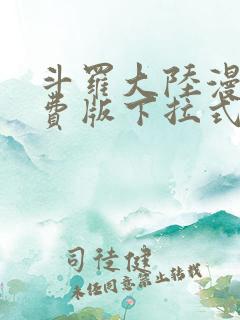 斗羅大陸漫
費版下拉式
司徒健
未经同意禁止转载